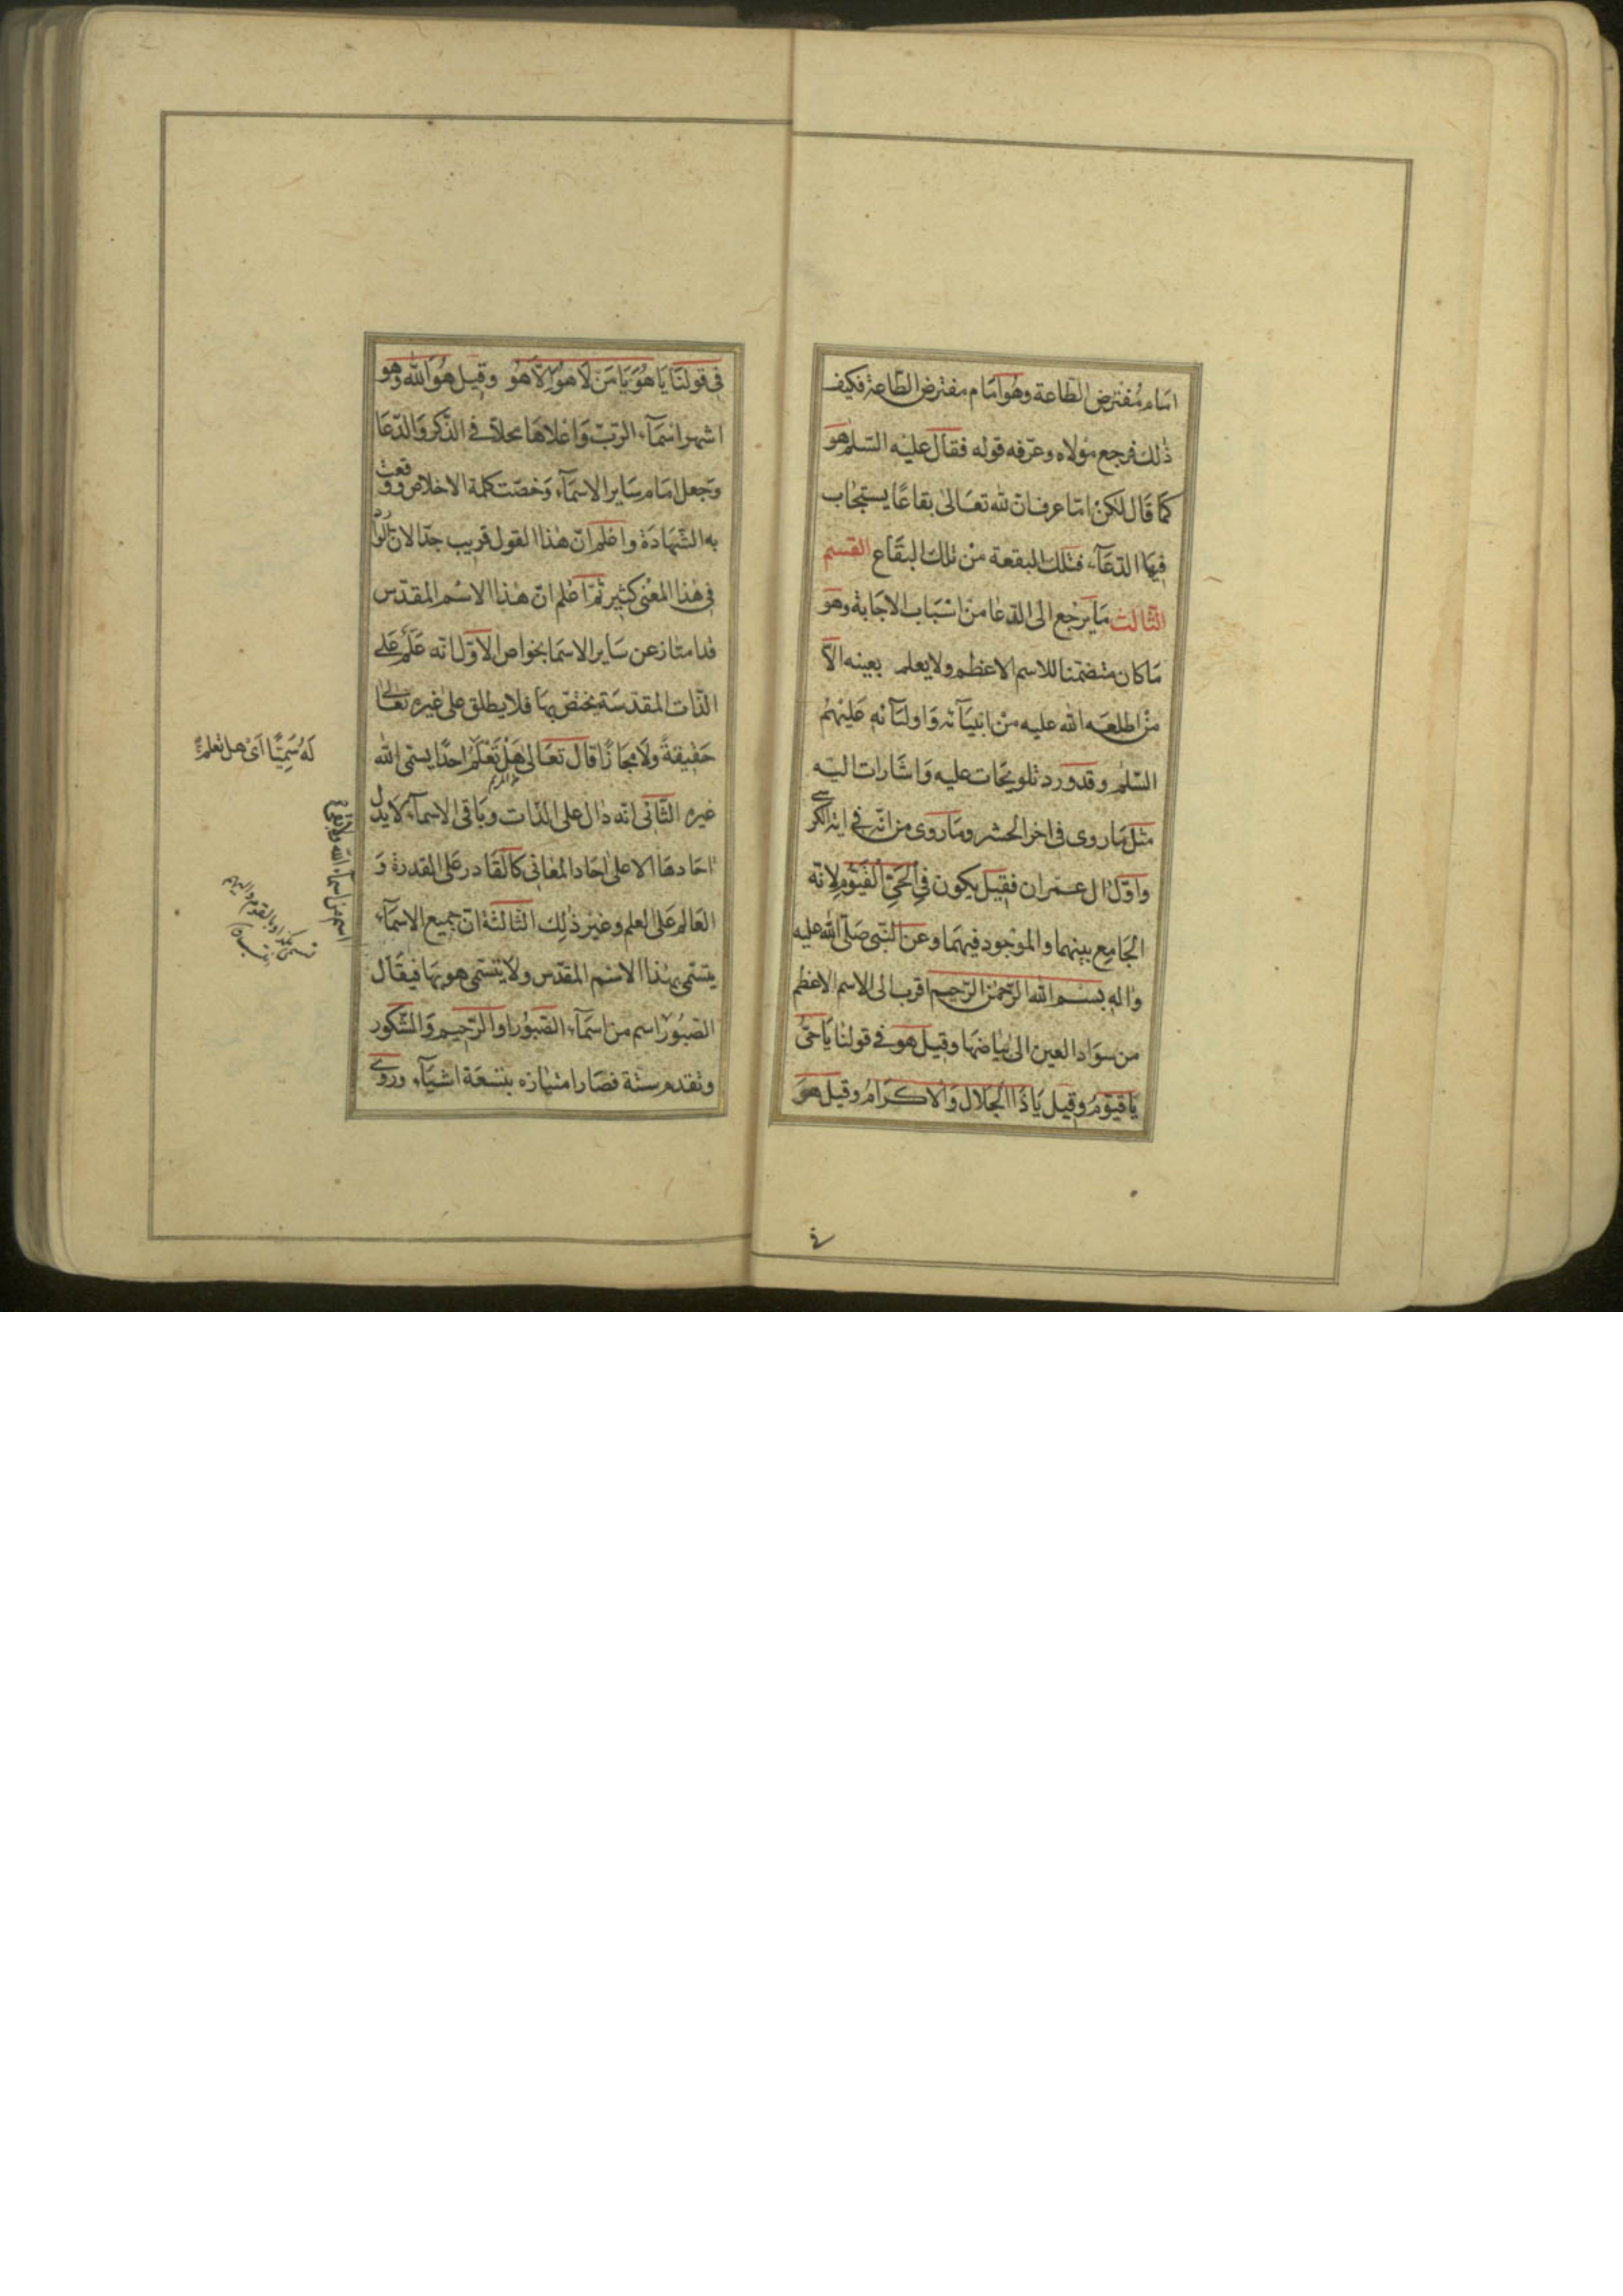 امام مُفترض الطّاعة وهُوَ امَام مفترض الطّاعة فكيف
ذلك فرجع مَولاه وعرّفه قوله فقال عليْه السّلم هو
كَما قَال لكنْ امَا عرف انّ لله تعَالى بقاعًا يستجٰاب
فِيهَا الدّعَآء فتلك البقعة منْ تلك البقَاع القسم
الثّالث مَا يَرْجع الى الدّعَا منْ اسْبَاب الاجَابة وهو
مَا كان متضمّنا للاسم الاعظم ولا يعلم بعينه الّا
مَن اطلعَه الله عليه منْ انبيَآئه وَاوليَآئه عَليْهمُ
السّلم وقد ورد تلويحَات عليه وَاشَارات اليْه
مثل مَا روى فى اخر الحشر ومَا روى من انّه فى اية الكرسى
واوّل ال عمْران فقيل يكون فِى الحَىِّ القَيّومِ لانّه
الجَامِع بينهما والموْجود فيهمَا وعن النّبى صَلّى الله عليه
واله بِسْم الله الرّحْمٰن الرّحيم اقرب الى الاسم الاعظم
من سوَاد العين الى بيَاضهَا وقيل هو فى قولنٰا يَا حَىُّ
يَا قيّوُمُ وقيل يَا ذَا الجَلال وَالاكرَام وقيل هوَ
فى
فِى قولنَا يَا هُوَ يَا مَنْ لَا هوَ الَّا هُو وقيل هُوَ الله وهو
اشهر اسْمَآء الربّ وَاعْلاهَا محلاّ فى الذّكر وَالدّعَا
وجعل امَام سَاير الاسْمَآء وَخصّت كلمة الاخلاص ووقعت
به الشّهَادَة واعْلم انّ هٰذا القول قريب جدّا لانّ الوارد
فى هٰذا المعْنى كثير ثمّ اعْلم انّ هٰذا الاسْم المقدّس
قد امتَاز عن سَاير الاسمَا بخواص الاوّل انّه عَلَم عَلى
الذّات المقدّسَة يختصّ بهَا فلا يطلق على غيره تعَالى
حَقيقةً ولَا مجَازًا قال تعَالى هَلْ تَعْلَمُ احدًا يسمّى الله
غيره الثَّانى انّه دَال على الذّات وبَاقى الاسمآء لا يَدل
احَادهَا الا على احَاد المعَانى كالقَادر عَلى القدرة وَ
العَالم عَلى العلم وغيْر ذٰلِك الثَّالثة انّ جميع الاسمَآء
يتسَمّى بهٰذا الاسْم المقدّس ولَا يتسَمّى هو بهَا فيقَال
الصّبوُر اسم من اسمَآء الله
له سَمِيًّا اَىْ هل تعلم